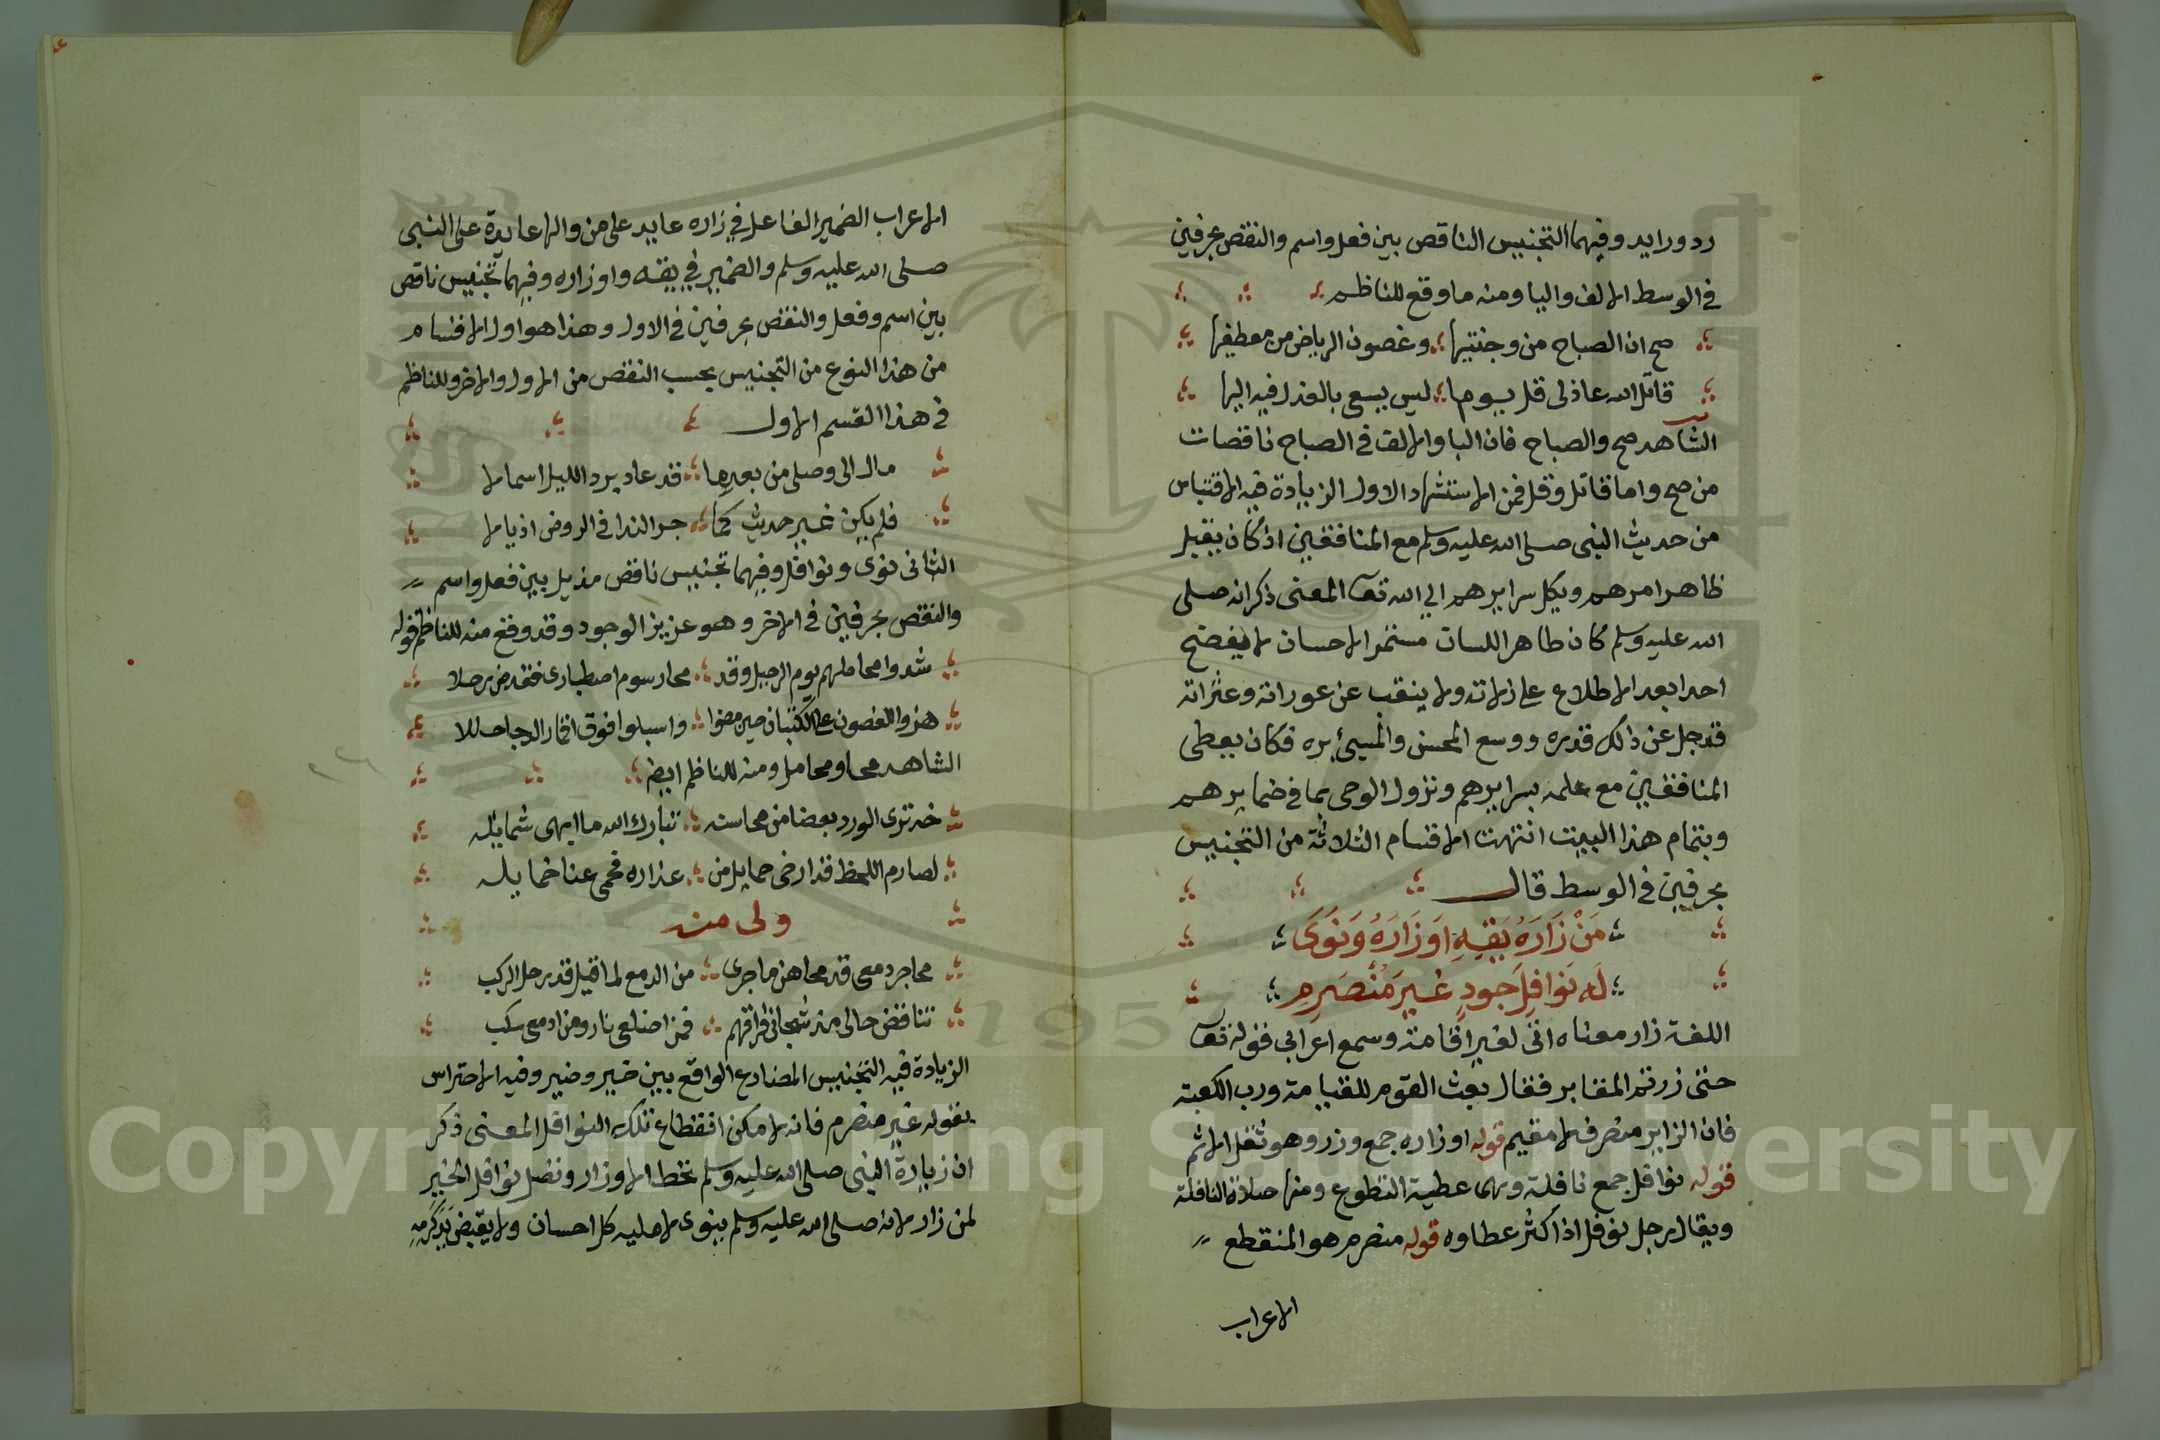 رد ورايد وفيهما التجنيس الناقص بين فعل واسم والنقص بحرفين
في الوسط الالف واليا ومنه ما وقع للناظم
صح ان الصباح من وجنتيها وغصون الرياض من معطفيها
قاتل الله عاذلى قل يوما ليس يسعى بالعذل فيه اليها
الشاهد صح والصباح فان البا والالف في الصباح ناقصات
من صح واما قاتل وقل فمن الاستشهاد الاول الزيادة فيه الاقتباس
من حديث النبى صلى الله عليه وسلم مع المنافقين اذ كان يقبل
ظاهر امرهم ويكل سرايرهم الي الله تعا المعنى ذكر انه صلى
الله عليه وسلم كان طاهر اللسان مستمر الاحسان لا يفضح
احدا بعد الاطلاع على زلاته ولا ينقب عن عوراته وعثراته
قد جل عن ذلك قدره ووسع المحسن والمسيئ بره فكان يعطى
المنافقين مع علمه بسرايرهم ونزول الوحى بما في ضمايرهم
وبتمام هذا البيت انتهت الاقسام الثلاثة من التجنيس
بحرفين في الوسط قال
مَنْ زَارَهُ يَقِيهِ اَوزَارَهُ وَنَوَى
لَه نَوافِلَ جودٍ غيرَ مُنْصَرِمِ
اللغة زار معناه اتى لغير اقامة وسمع اعرابي قوله تعا
حتى زرتم المقابر فقال بعث القوم للقيامة ورب الكعبة
فان الزاير منصرف لا مقيم قوله اوزاره جمع وزر وهو ثقل الاثم
قوله نوافل جمع نافلة وهى عطية التطوع ومنها صلاة النافلة
ويقال رجل نوفل اذا كثر عطاوه قوله منصرم هو المنقطع
الاعراب
الاعراب الضمير الفاعل في زاره عايد على من والها عايدة على النبى
صلى الله عليه وسلم والضمير في يقه واوزاره وفيهما تجنيس ناقص
بين اسم وفعل والنقص بحرفين في الاول وهذا هو اول الاقسام
من هذا النوع من التجنيس بحسب النقص من الاول والاخر وللناظم
في هذا القسم الاول
مال الى وصلى من بعدما قد عاد برد الليل اسمالا
فلم يكن غير حديث كما جر الندا في الروض اذيالا
الثانى نوى ونوافل وفيهما تجنيس ناقص مذيل بين فعل واسم
والنقص بحرفين في الاخر وهو عزيز الوجود وقد وقع منه للناظم قوله
شدوا محاملهم يوم الرحيل وقد محا رسوم اصطبارى فقد من رحلا
هزوا الغصون على الكثبان حين مضوا واسبلوا فوق اقمار الدجا حللا
الشاهد محا ومحامل ومنه للناظم ايضا
خد ترى الورد بعضا من محاسنه تبارك الله ما ابهى شمايله
لصارم اللحظ قد ارخى حمايل من عذاره فحمى عنا خمايله
ولى منه
محاجر دمعى قد محاهن ما جرى من الدمع لما قيل قد رحل الركب
تناقض حالى مذ شجانى فراقهم فمن اضلعى نار ومن ادمعى سكب
الزيادة فيه التجنيس المضارع الواقع بين وفيه الاحتراس
بقوله غير منصرم فانه لا مكن انقطاع تلك النوافل المعنى ذكر
ان زيارة النبى صلى الله عليه وسلم تحط الاوزار وتصل نوافل الخير
لمن زار لانه صلى الله عليه وسلم ينوى لاهليه كل احسان ولا يقبض